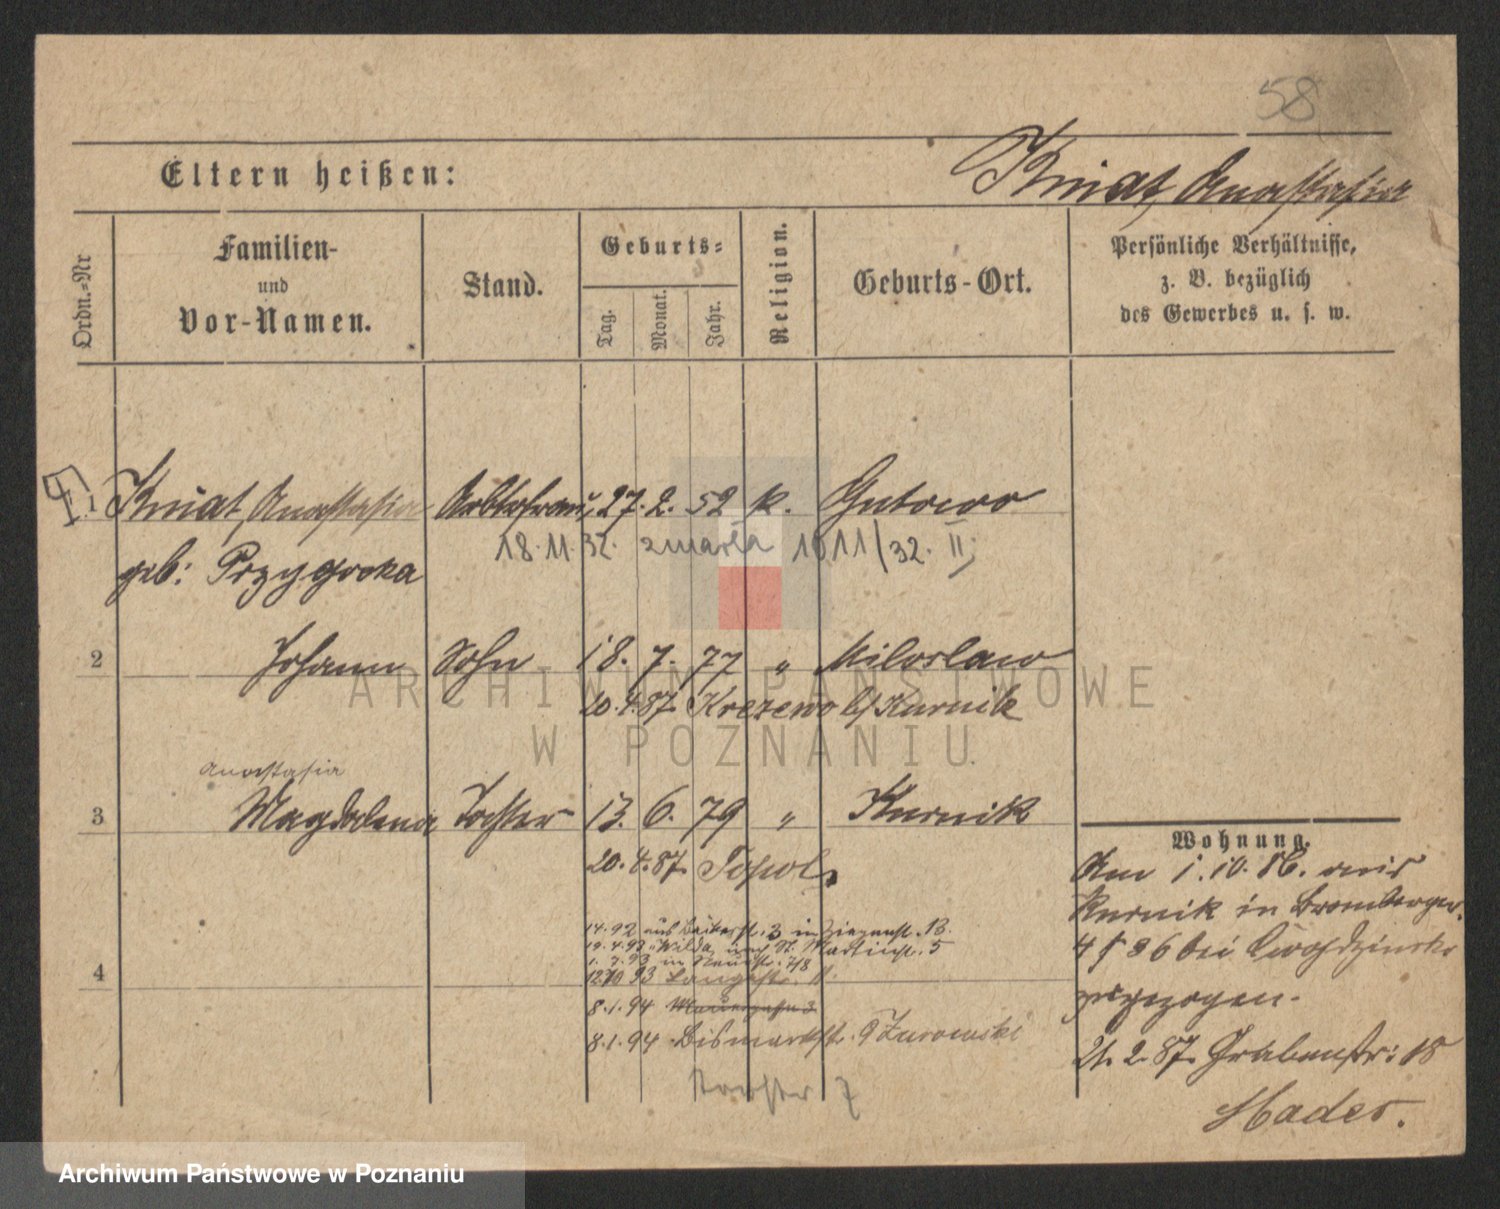 58
Eltern heißen:
Kniat, Anastasia
Ordn.-Nr
Familien-
und
Vor-Namen.
Stand.
Geburts-
Tag.
Monat.
Jahr.
Religion.
Geburts-Ort.
Persönliche Verhältnisse,
z. B. bezüglich
des Gewerbes u. s. w.
1 Kniat, Anastasia Arbtrfrau, 27. 2. 52 k. Gutowo
18. 11. 32. zmarła 10 11/32. II
geb: Przygocka
2 Johann Sohn 18. 7. 77 " Miloslaw
20. 4. 87. Krezewo b/ Kurnik
Anastasia
3 Magdalena Tochter 13. 6. 79 " Kurnik
20. 4. 87.
4
1 4. 92 aus Bäckerst. 3 in Ziegenst. 13.
19. 4. 92 Wilda nach St. Martinst. 5
1. 7. 93 in Neuestr. 7/8
12/10 93 Langestr. 11.
8. 1. 94
8. 1. 94 Bismarckstr. 9 Zurowski
Wohnung.
Am 1. 10. 86. aus
Kurnik in Bromberger.
bei
zugezogen.
21. 2. 87. Grabenstr: 18
Mader.
ARCHIWUM PAŃSTWOWE
W POZNANIU
Archiwum Państwowe w Poznaniu